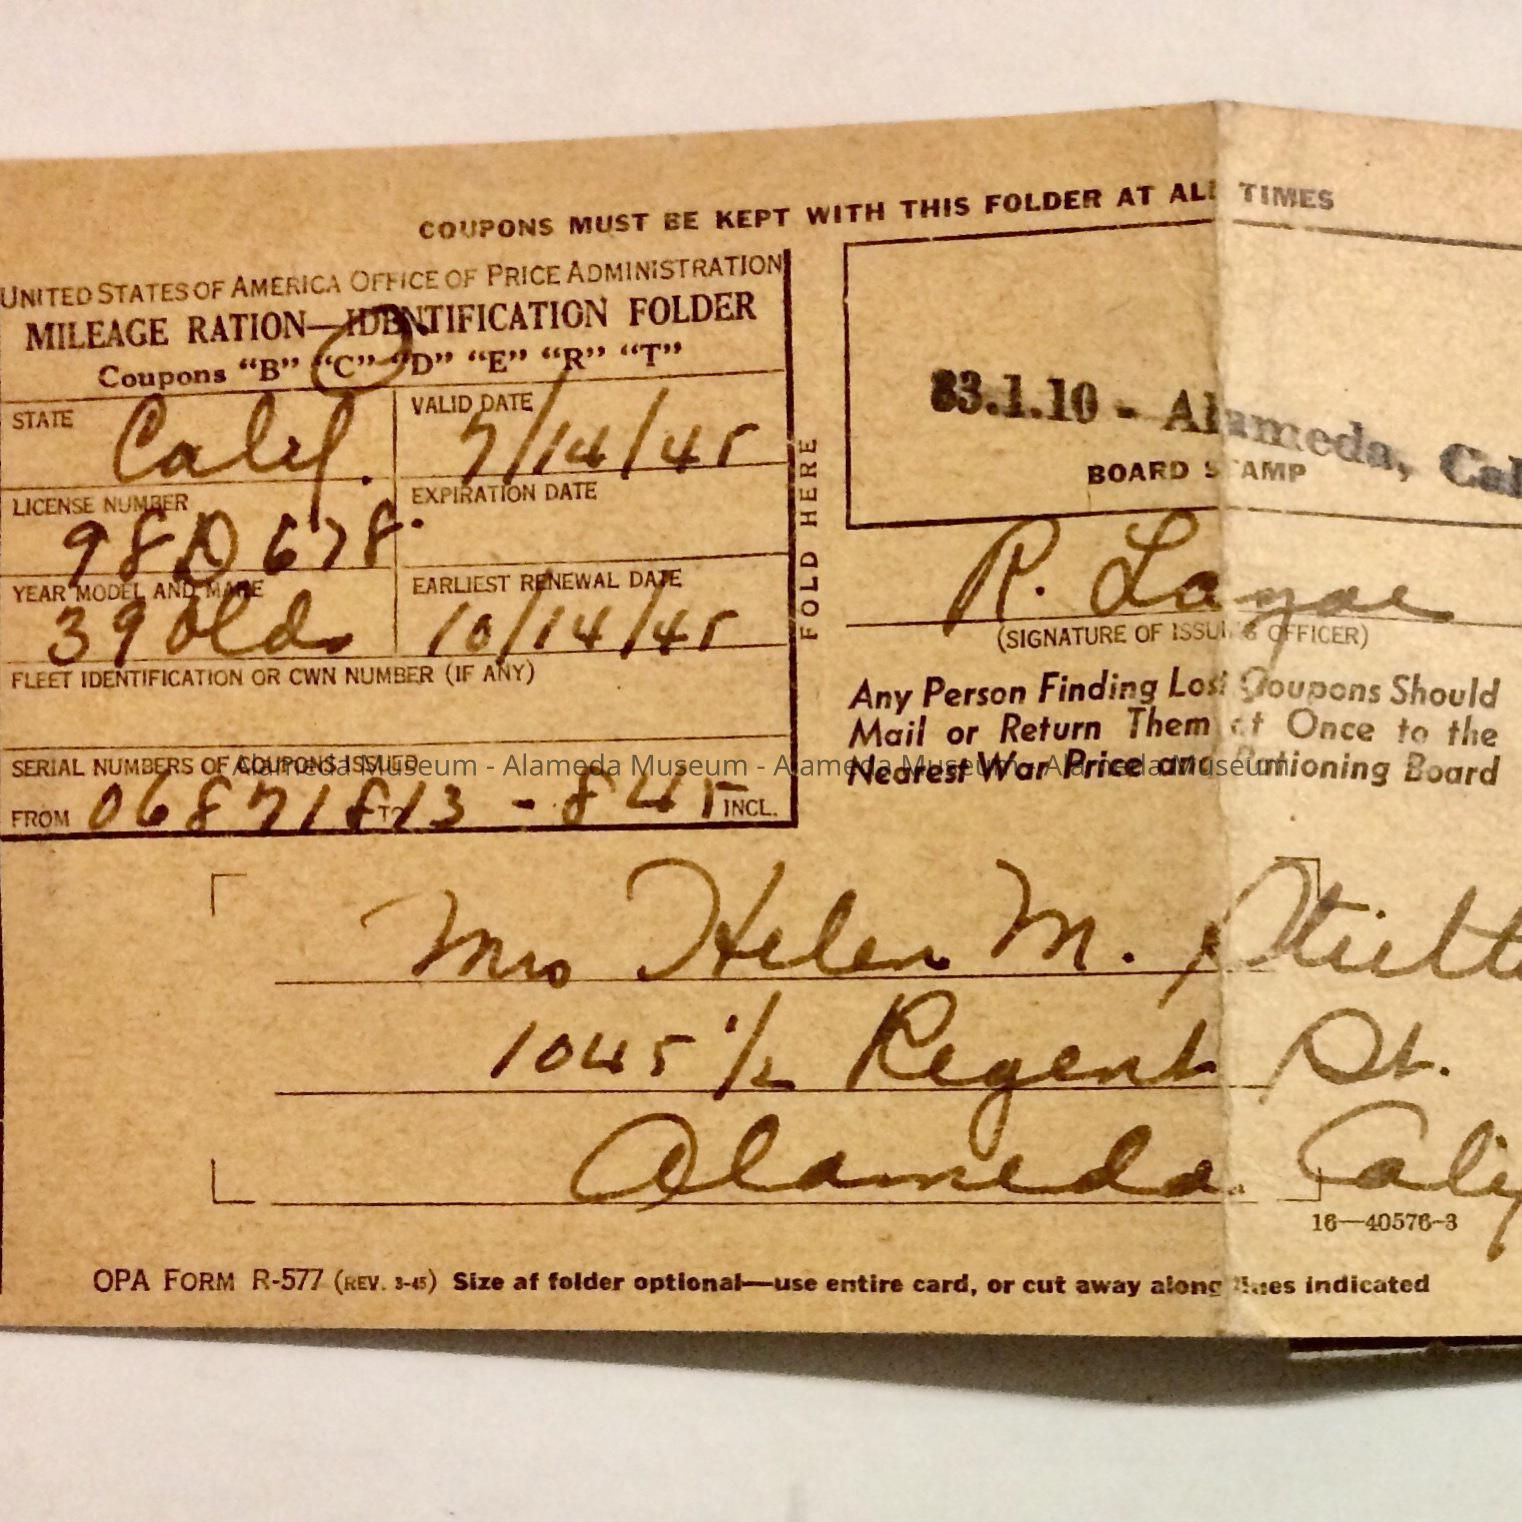 COUPONS MUST BE KEPT WITH THIS FOLDER AT ALL TIMES
UNITED STATES OF AMERICA OFFICE OF PRICE ADMINISTRATION
MILEAGE RATION—IDENTIFICATION FOLDER
Coupons "B" "C" "D" "E" "R" "T"
STATE
Calif.
VALID DATE
7/14/45
LICENSE NUMBER
98D678
EXPIRATION DATE
YEAR MODEL AND MAKE
39 Olds
EARLIEST RENEWAL DATE
10/14/45
FLEET IDENTIFICATION OR CWN NUMBER (IF ANY)
SERIAL NUMBERS OF COUPONS ISSUED
FROM 06871813 TO - 845 INCL.
FOLD HERE
83.1.10 - Alameda, Cal
BOARD STAMP
R.
(SIGNATURE OF ISSUING OFFICER)
Any Person Finding Lost Coupons Should
Mail or Return Them at Once to the
Nearest War Price and Rationing Board
Alameda Museum - Alameda Museum - Alameda Museum - Alameda Museum
Mrs Helen M.
1045 1/2 Regent St.
Alameda Calif
16—40576-3
OPA FORM R-577 (REV. 3-45) Size af folder optional—use entire card, or cut away along lines indicated